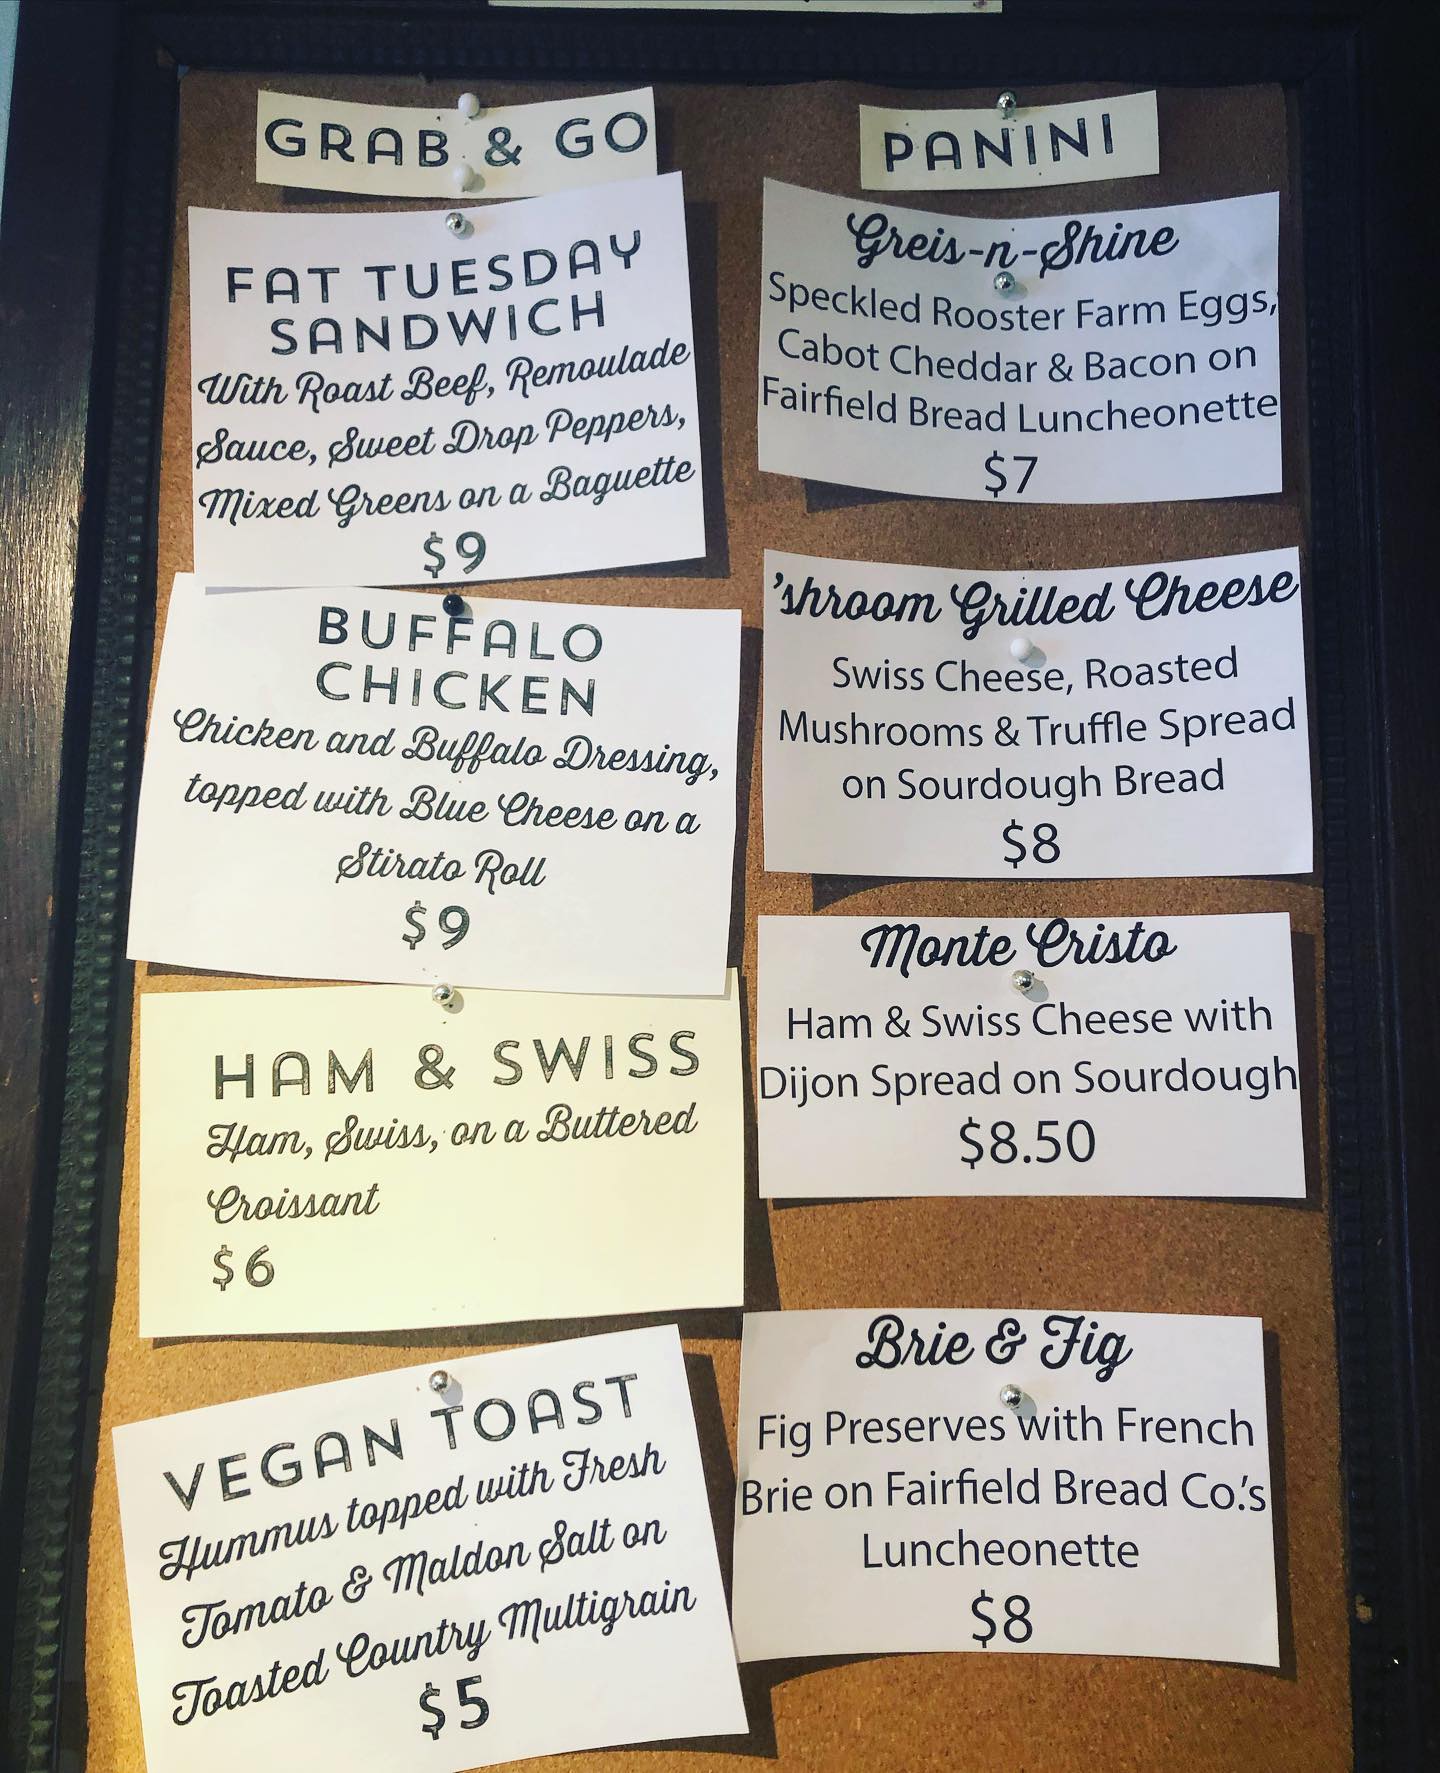 GRAB & GO
FAT TUESDAY
SANDWICH
With Roast Beef, Remoulade
Sauce, Sweet Drop Peppers,
Mixed Greens on a Baguette
$9
BUFFALO
CHICKEN
Chicken and Buffalo Dressing,
topped with Blue Cheese on a
Stirato Roll
$9
HAM & SWISS
Ham, Swiss, on a Buttered
Croissant
$6
VEGAN TOAST
Hummus topped with Fresh
Tomato & Maldon Salt on
Toasted Country Multigrain
$5
PANINI
Greis-n-Shine
Speckled Rooster Farm Eggs,
Cabot Cheddar & Bacon on
Fairfield Bread Luncheonette
$7
'shroom Grilled Cheese
Swiss Cheese, Roasted
Mushrooms & Truffle Spread
on Sourdough Bread
$8
Monte Cristo
Ham & Swiss Cheese with
Dijon Spread on Sourdough
$8.50
Brie & Fig
Fig Preserves with French
Brie on Fairfield Bread Co.'s
Luncheonette
$8